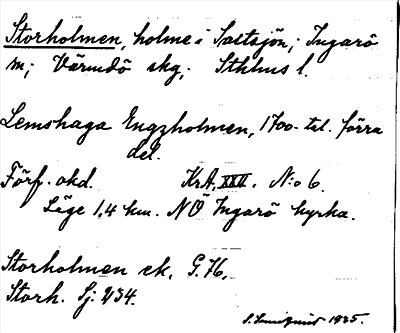 Storholmen, holme i Saltsjön; Ingarö
sn; Värmdö skg; Sthlms l.
Lemshaga Engzholmen, 1700-tal. förra
del.
Förf. okd. KrA. XXVI. N:o 6.
Läge 1,4 km. NÖ Ingarö kyrka.
Storholmen ek. G. 76,
Storh. Sj: 234.
1935.